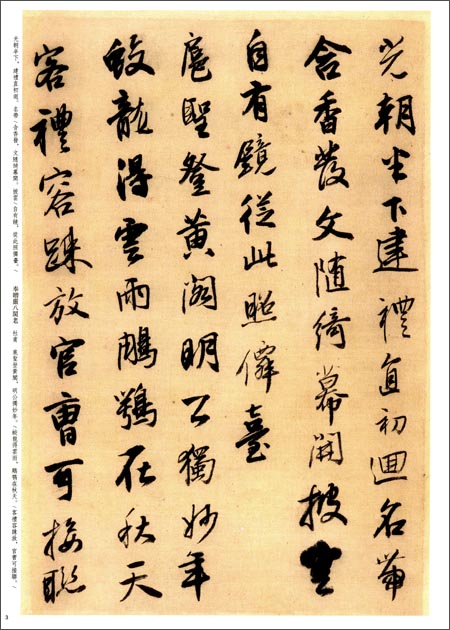 光朝半下建禮直初迴名帶
含香發文隨綺幕開披雲
自有鏡從此照僊臺
扈聖登黃閣明公獨妙年
蛟龍得雲雨鵰鶚在秋天
客禮容疎放官曹可接聯
光朝半下，建禮直初迴。名帶（含香發，文隨綺幕開。披雲（自有鏡，從此照僊臺。（　奉贈嚴八閣老　杜甫　扈聖登黃閣，明公獨妙年。（蛟龍得雲雨，鵰鶚在秋天。（客禮容疎放，官曹可接聯。（
3